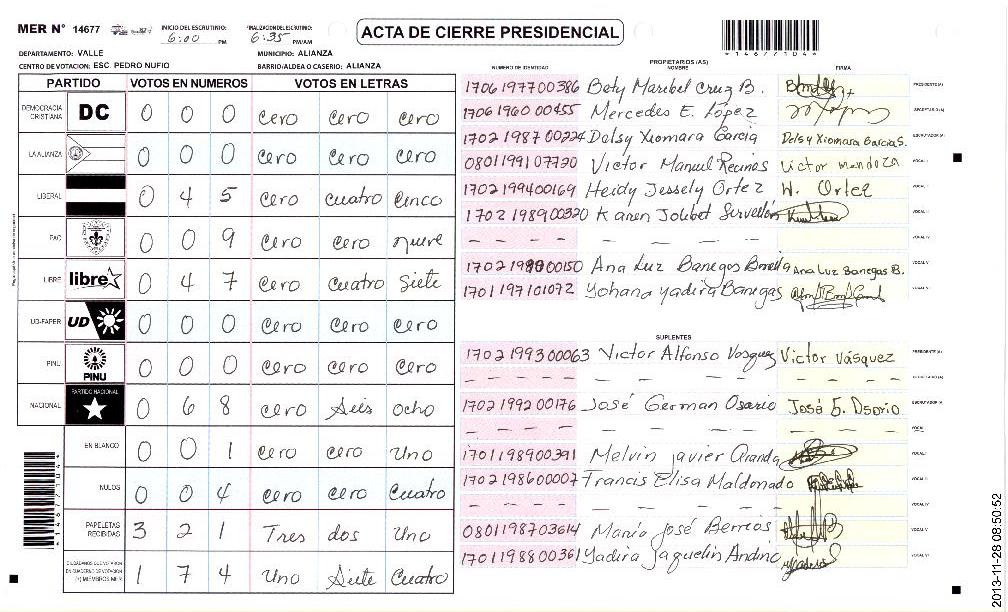 MER N° 14677
INICIO DEL ESCRUTINIO: 6:00 PM
FINALIZACION DEL ESCRUTINIO: 6:35 PM/AM
ACTA DE CIERRE PRESIDENCIAL
*14677104*
DEPARTAMENTO: VALLE
MUNICIPIO: ALIANZA
CENTRO DE VOTACION: ESC. PEDRO NUFIO
BARRIO/ALDEA O CASERIO: ALIANZA
PARTIDO VOTOS EN NUMEROS VOTOS EN LETRAS
DEMOCRACIA CRISTIANA DC 0 0 0 Cero Cero Cero
LA ALIANZA 0 0 0 Cero Cero Cero
LIBERAL 0 4 5 Cero Cuatro Cinco
PAC 0 0 9 Cero Cero nueve
LIBRE libre 0 4 7 Cero Cuatro Siete
UD-FAPER UD 0 0 0 Cero Cero Cero
PINU PINU 0 0 0 Cero Cero Cero
NACIONAL PARTIDO NACIONAL 0 6 8 Cero Seis ocho
EN BLANCO 0 0 1 Cero Cero Uno
NULOS 0 0 4 Cero Cero Cuatro
PAPELETAS RECIBIDAS 3 2 1 Tres dos Uno
CIUDADANOS QUE VOTARON EN CUADERNO DE VOTACION (+) MIEMBROS MER 1 7 4 Uno Siete Cuatro
*14677104*
PROPIETARIOS (AS)
NUMERO DE IDENTIDAD NOMBRE FIRMA
1706197700386 Bety Maribel Cruz B. PRESIDENTE (A)
1706196000455 Mercedes E. López SECRETARIO (A)
1702198700224 Delsy Xiomara Garcia Delsy Xiomara Garcia S. ESCRUTADOR (A)
0801199107720 Victor Manuel Victor Mendoza VOCAL I
1702199400169 Heidy Jessely Ortez H. Ortez VOCAL
1702198900320 Karen VOCAL III
– – – – – – – – – VOCAL IV
Ana Luz Banegas Ana Luz Banegas B. VOCAL V
1701197101072 Yohana Yadira Banegas VOCAL VI
SUPLENTES
1702199300063 Victor Alfonso Vasquez Victor Vásquez PRESIDENTE (A)
– – – – – – – – – SECRETARIO (A)
1702199200176 José German Osorio José G. Osorio ESCRUTADOR (A)
– – – – – – – – – VOCAL
1701198900391 Melvin Javier Aranda VOCAL
1702198600007 Francis Elisa Maldonado VOCAL III
– – – – – – – – – VOCAL IV
0801198703614 María José Berrios VOCAL V
1701198800361 Yadira Jaquelin Andino VOCAL VI
2013-11-28 08:50:52